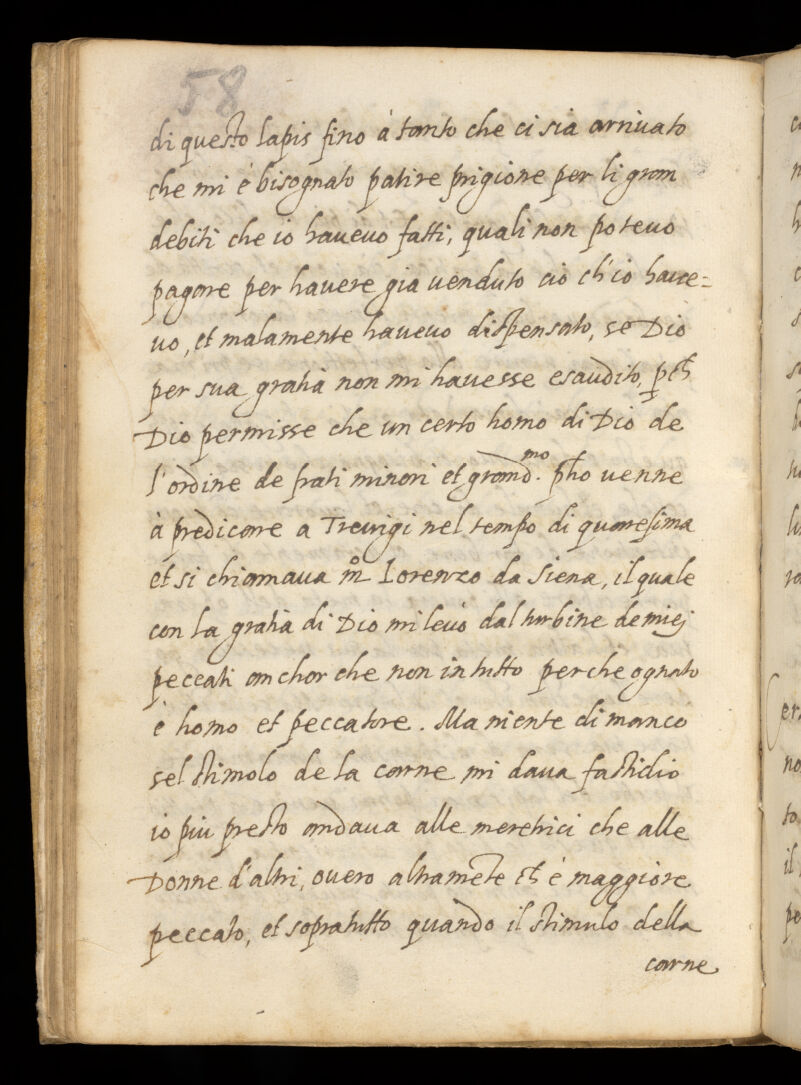 58
di questo lapis fino à tanto che ci sia arriuato
che mi è bisognato patire prigione per li gran
debiti che io haueuo fatti, quali non poteuo
pagare per hauere gia uenduto ciò ch'io haue=
uo, et malamente haueuo dispensato, se Dio
per sua gratia non mi hauesse esaudito, pch
Dio permisse che un certo homo di Dio de
l'ordine de frati minori et grand.mo pho uenne
à predicare a Treuigi nel tempo di quaresima
et si chiamaua mo Lorenzo da Siena, il quale
con la gratia di Dio mi leuò dal turbine de miej
peccati anchor che non in tutto perche ognuno
è homo et peccatore. Ma niente di manco
sel stimolo de la carne mi daua fastidio
io piu presto andaua alle meretrici che alle
Donne d'altri, ouero altramete ch è maggiore
peccato, et sopratutto quando il stimulo della
carne